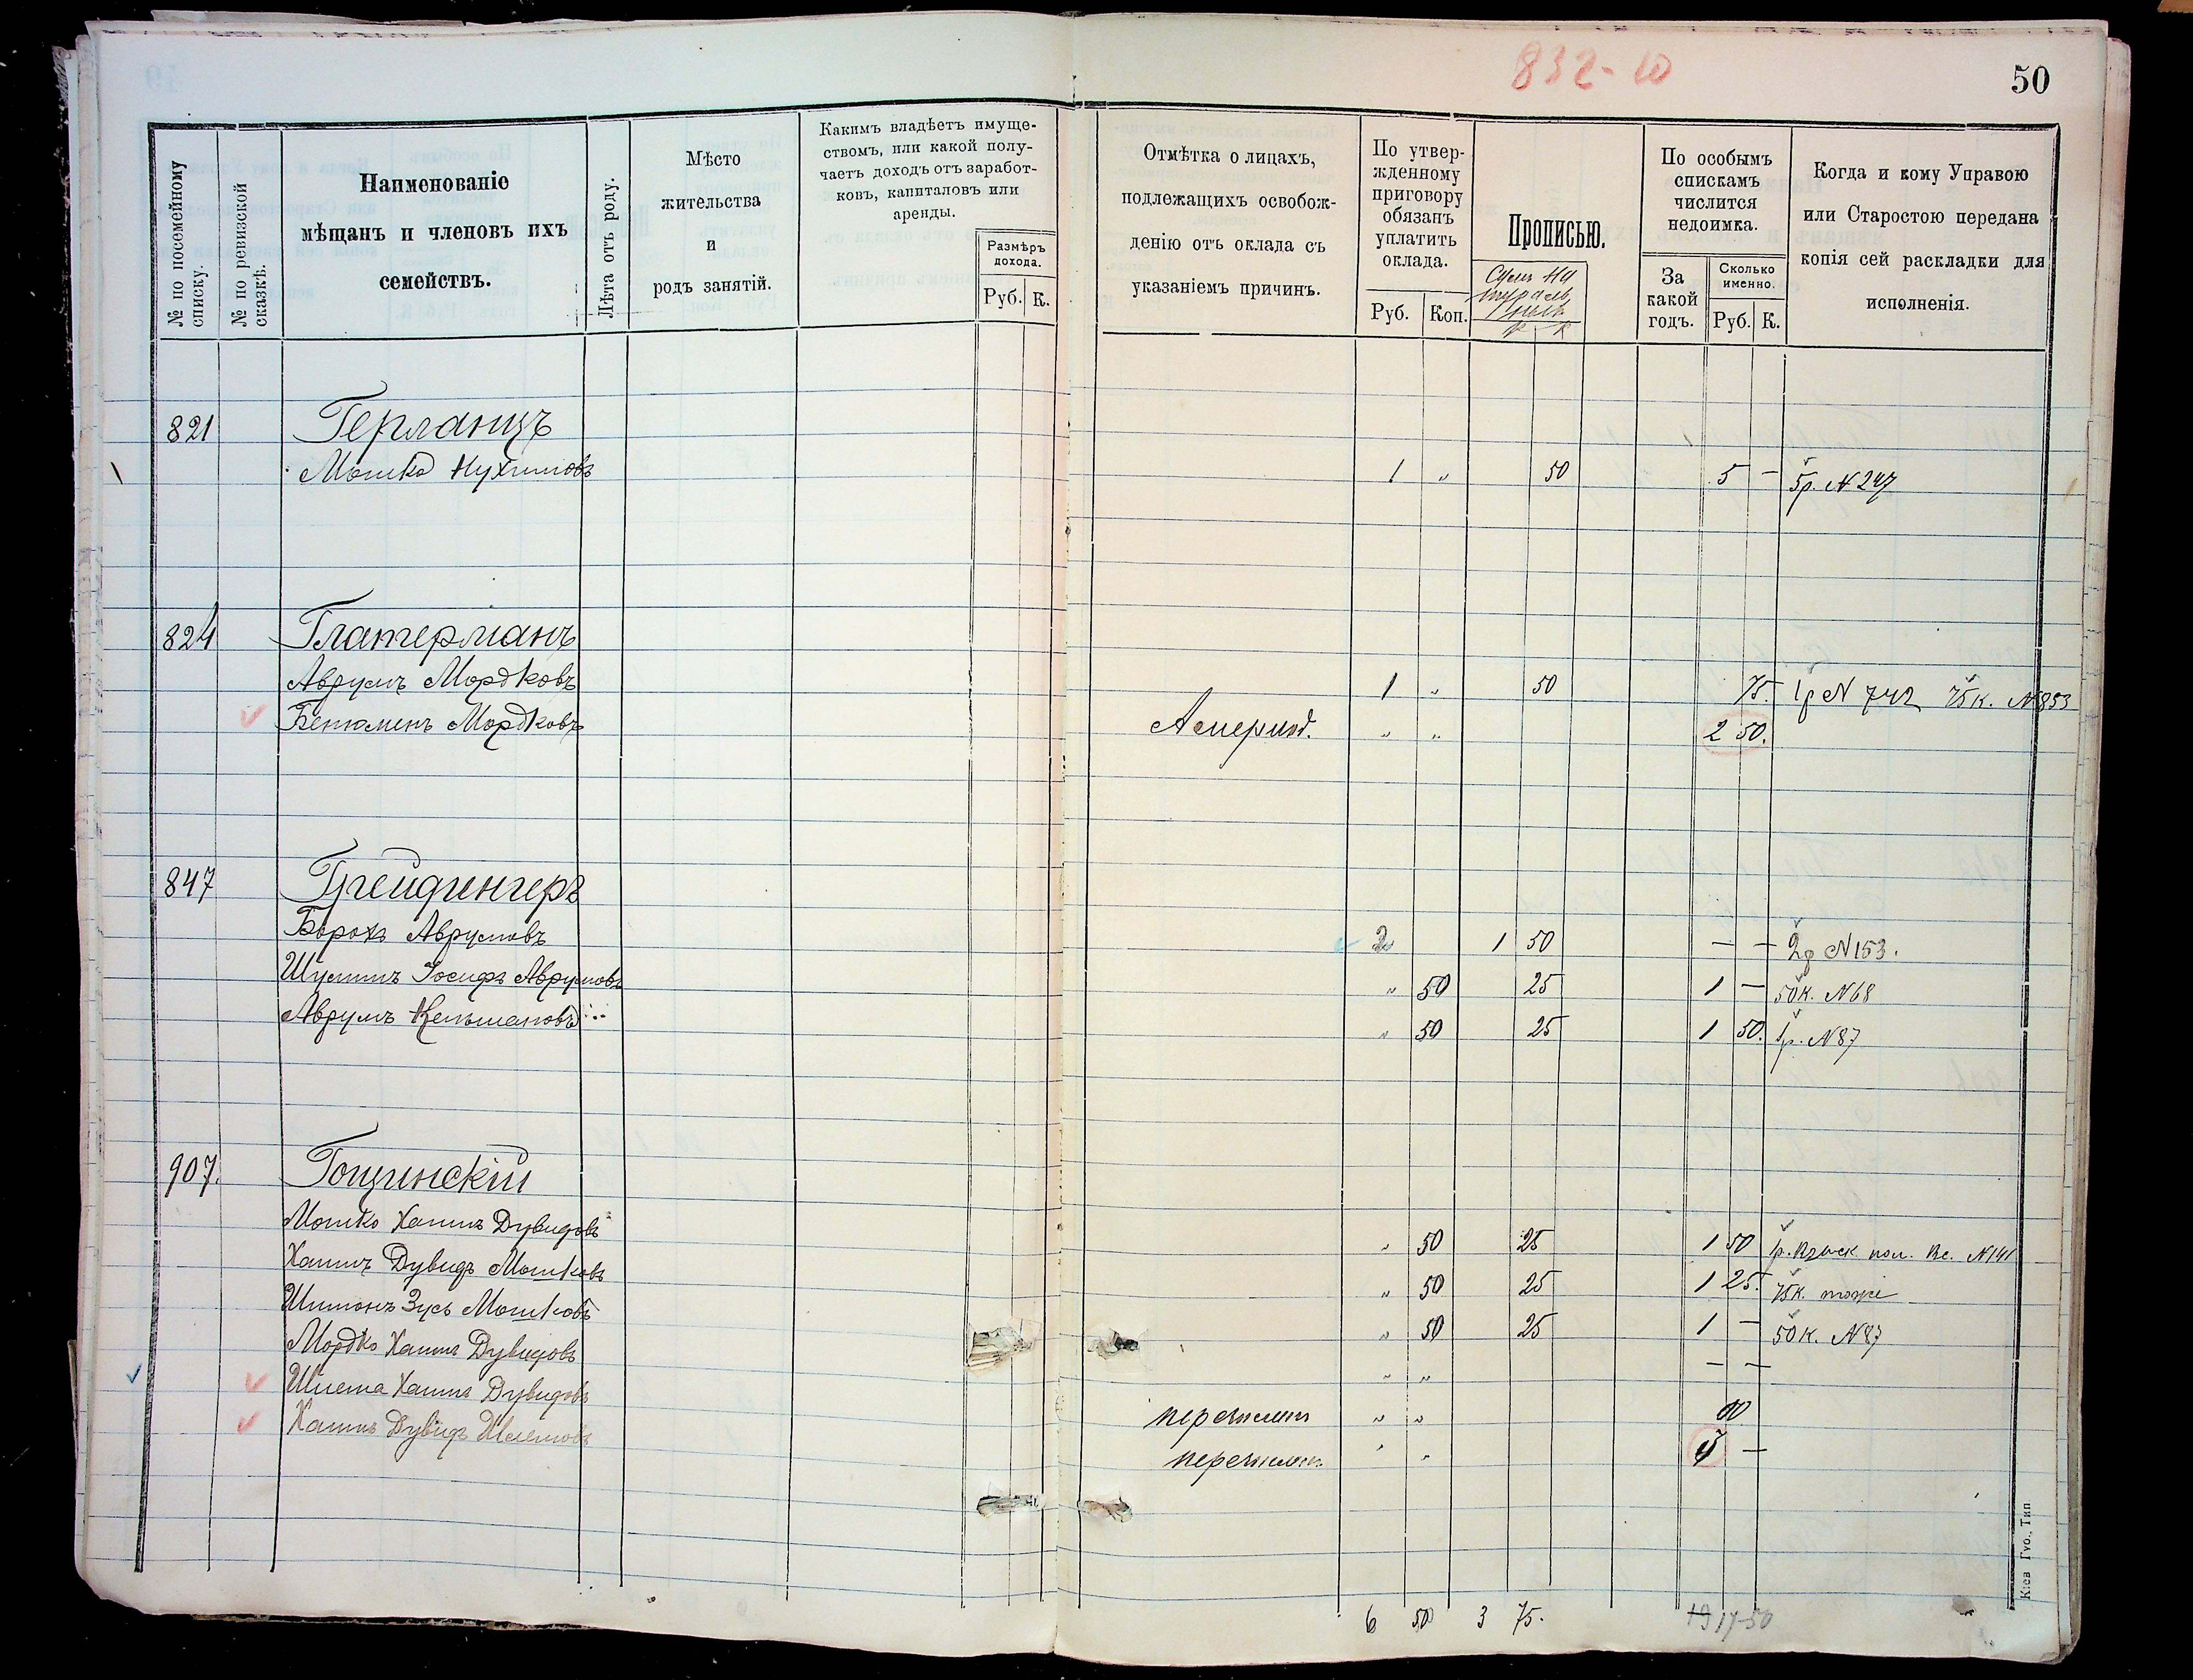 832-10
50
№ по посемейному списку.
№ по ревизской сказкѣ.
Наименованіе
мѣщанъ и членовъ ихъ
семействъ.
Лѣта отъ роду.
Мѣсто
жительства
и
родъ занятій.
Какимъ владѣетъ имуще-
ствомъ, или какой полу-
чаетъ доходъ отъ заработ-
ковъ, капиталовъ или
аренды.
Размѣръ
дохода.
Руб. К.
Отмѣтка о лицахъ,
подлежащихъ освобож-
денію отъ оклада съ
указаніемъ причинъ.
По утвер-
жденному
приговору
обязанъ
уплатить
оклада.
Руб. Коп.
Прописью.
По особымъ
спискамъ
числится
недоимка.
За
какой
годъ.
Сколько
именно.
Руб. К.
Когда и кому Управою
или Старостою передана
копія сей раскладки для
исполненія.
821 Герланцъ
Мошко Нухимовъ 1 „ 50 5 — 5р. N 247
824 Глатерманъ
Аврумъ Мордковъ 1 „ 50 75. 1р N 742 75к. N 853
Бенюменъ Мордковъ „ „ 2 50.
847 Грейдингеръ
Борохъ Аврумовъ 2 1 50 — — 2р N 153.
Шулимъ Іосифъ Аврумовъ „ 50 25 1 — 50к. N 68
Аврумъ „ 50 25 1 50. 1р. N 87
907. Гощинскій
Мошко Хаимъ Дувидовъ „ 50 25 1 50 1р. N 141
Хаимъ Дувидъ Мошковъ „ 50 25 1 25. 75к. тоже
Шимонъ Зусь Мошковъ „ 50 25 1 — 50к. N 87
Мордко Хаимъ Дувидовъ „ „ — —
Шлема Хаимъ Дувидовъ перечислен „ „
Хаимъ Дувидъ Шлемовъ перечислен „ „
6 50 3 75. 17-50
Кіев Губ. Тип